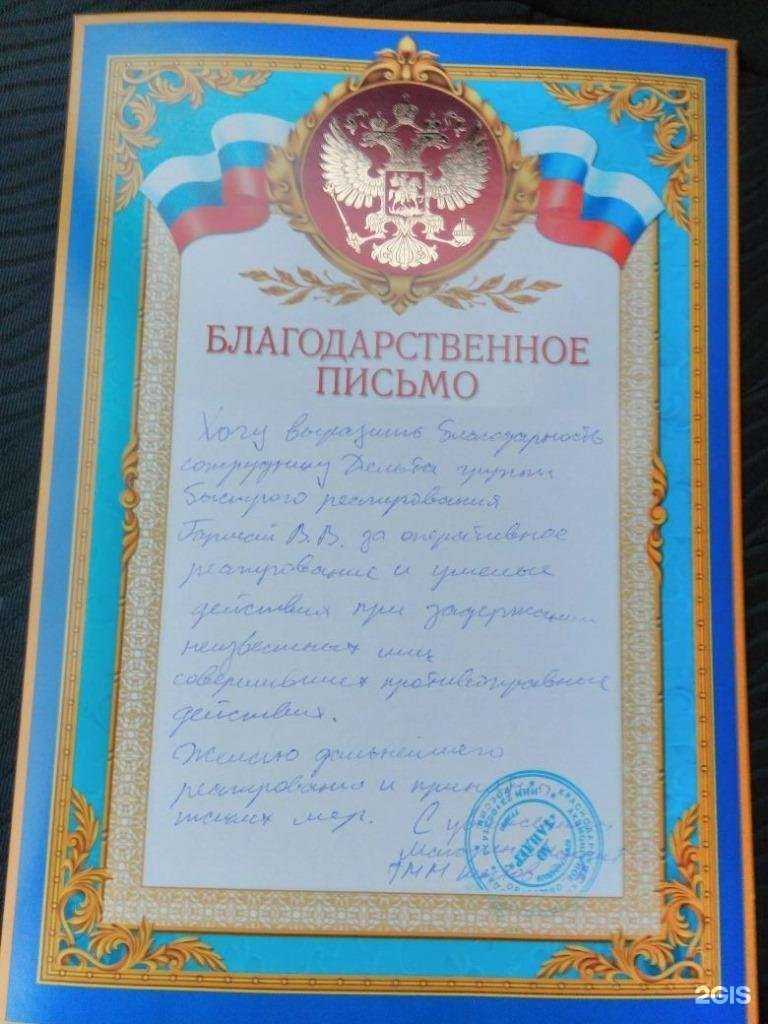 БЛАГОДАРСТВЕННОЕ
ПИСЬМО
Хочу выразить благодарность
сотруднику Дельта группы
быстрого реагирования
В.В. за оперативное
реагирование и умелые
действия при задержании
неизвестных лиц
совершивших противоправные
действия.
Желаю дальнейшего
реагирования и
таких мер. С уважением
ММ
"ТАНДЕР"
2GIS